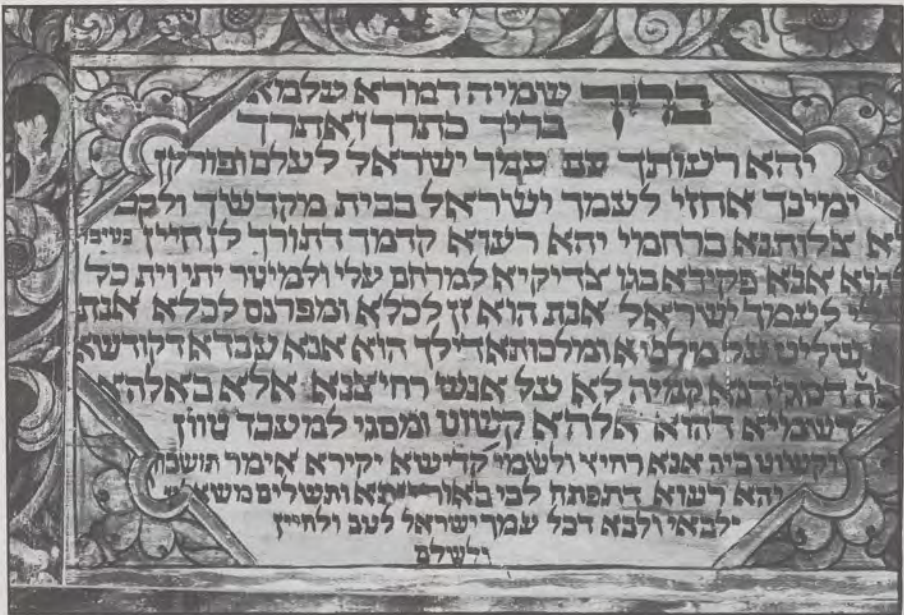 בריך שומיה דמרא עלמא
בריך כתרך ואתרך
יהא רעותך עם עמך ישראל לעלם ופורקן
ימינך אחזי לעמך ישיראל בבית מקדשיך
צלותנא ברחמי יהא רעוא קדמך דתורך לן חיין בטיבו
אנא פקידא בגו צדיקיא למרחם עלי ולמיטר יתי וית כל
לעמך ישיראל אנת הוא זן לכלא ומפרנס לכלא אנת
שליט על מלכיא ומלכותא דילך הוא אנא עבדא דקודשא
דסגידנא קמיה לא על אנש רחיצנא אלא באלהא
דשמיא דהוא אלהא קשוט ומסגי למעבד טוון
וקשוט ביה אנא רחיץ ולשמי קדישא יקירא אימר תושבח
יהא רעוא דתפתח לבי באורייתא ותשלים
ולבא דכל עמך ישראל לטב ולחיין
ולשלם